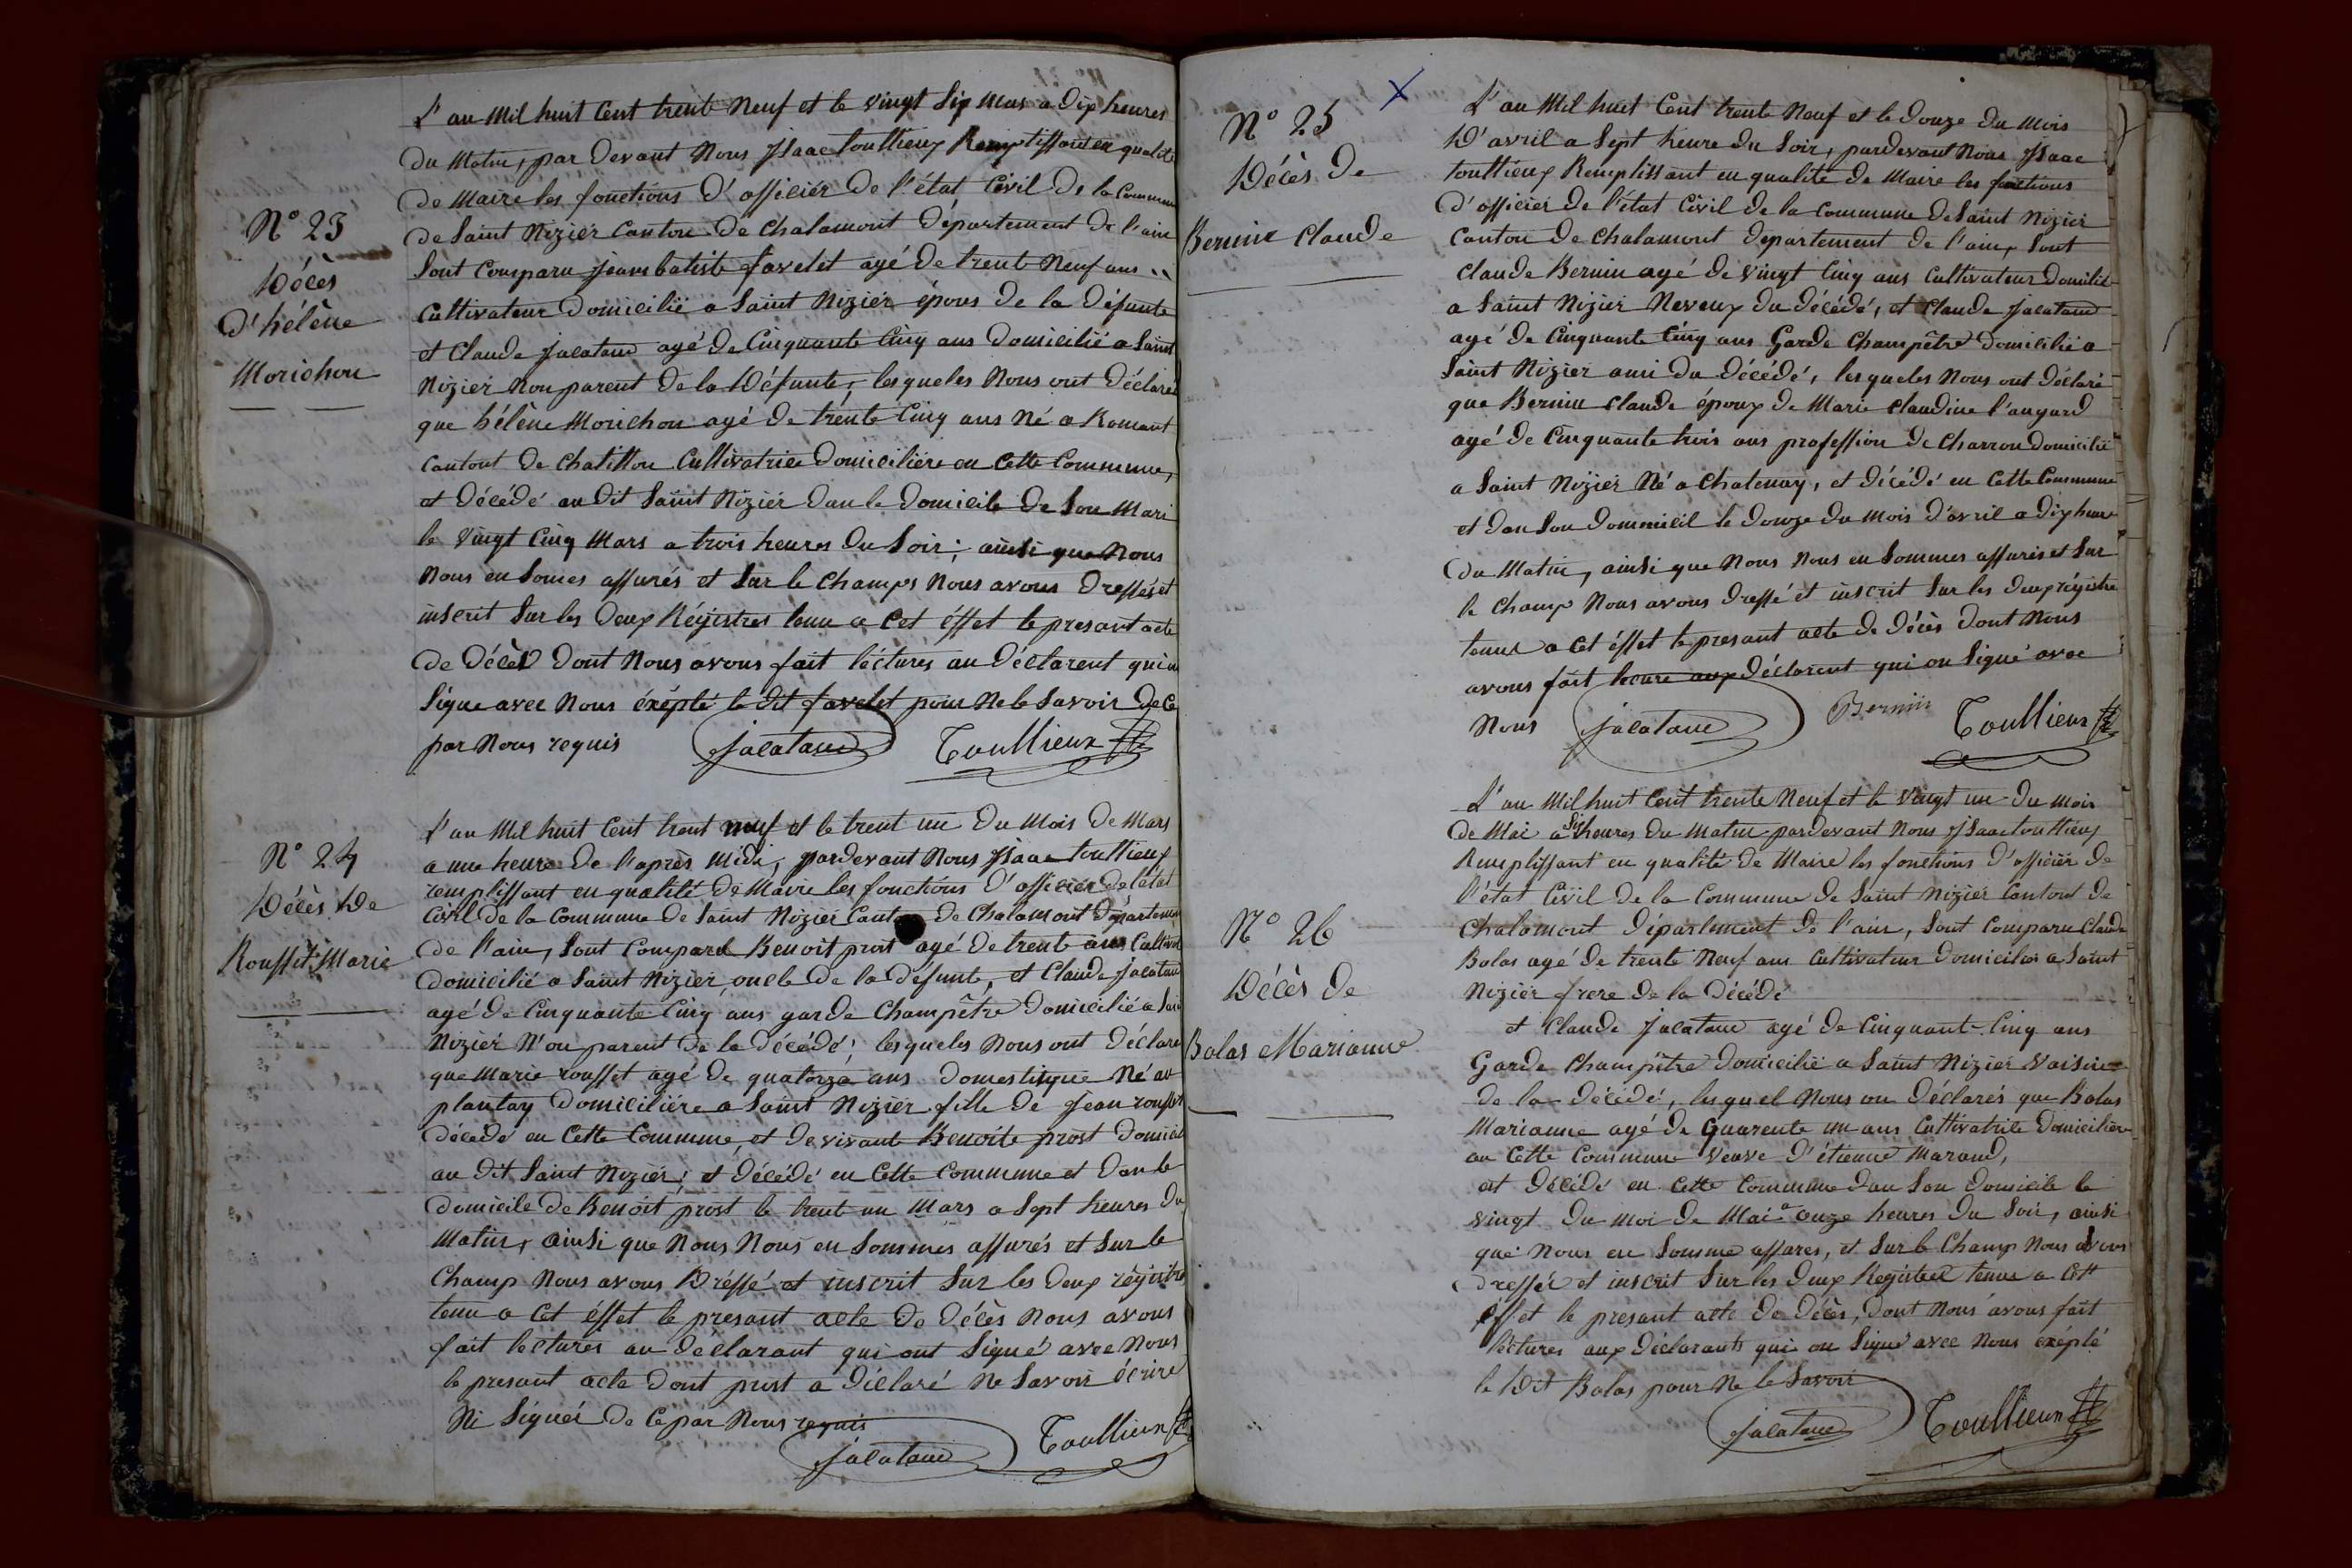 N° 23
Décès
d'hélène
Morichon
L'an Mil huit Cent trent Neuf et le vingt Six Mars a dix heures
du Matin, par devant Nous Isaac toullieux Remplissant en qualité
de Maire les fonctions d'officiér de l'état Civil de la Commune
de Saint Nizièr Canton de Chalamont département de l'ain
Sont Comparu Jean batiste favelet agé de trent Neuf ans
Cultivateur domicilié a Saint Nizièr épous de la défunte
et Claude Jacatand agé de Cinquante Cinq ans domicilié a Saint
Nizièr Non parent de la Défunte, lesqueles Nous ont déclaré
que hélène Morichon agé de trente Cinq ans Né a Romant
Cantont de Chatillon Cultivatrice domicilière en Cette Commune,
et décédé au dit Saint Nizièr dan le domicile de Son Mari
le vingt Cinq Mars a trois heures du Soir; ainsi que Nous
Nous en Somes assurés et Sur le Champs Nous avons dressés et
inscrit Sur les deux Régistres tenu a Cet éffet le presant acte
de décès dont Nous avons fait léctures au déclarent qui on
Signe avec Nous éxépté le dit favelet pour Ne le Savoir de Ce
par Nous requis
Jacatand
Toullieux
N° 24
Décès De
Rousset Marie
L'an Mil huit Cent trent neuf et le trent un du Mois de Mars
a une heure de l'après Midi, pardevant Nous Isaac toullieux
remplissant en qualité de Maire les fonctions d'officièr de l'état
Civil de la Commune de Saint Nizièr Canton de Chalamont départemen
de l'ain, Sont Comparu Benoit prost agé de trent ans Cultivat
domicilié a Saint Nizièr oncle de la défunte, et Claude Jacatan
agé de Cinquante Cinq ans garde Champêtre domicilié a Sain
Nizièr N'on parent de la décédé; lesqueles Nous ont déclaré
que Marie rousset agé de quatorze ans domestique Né au
plantay domicilière a Saint Nizièr fille de Jean rousset
décédé en Cette Commune et de vivante Benoite prost domicil
au dit Saint Nizièr; et décédé en Cette Commune et dan le
domicile de Benoit prost le trent un Mars a Sept heures du
Matin, ainsi que Nous Nous en Sommes assurés et Sur le
Champ Nous avons Dréssé et inscrit Sur les deux régistre
tenu a Cet éffet le presant acte de décès Nous avons
fait lectures au déclarant qui ont Signé avec Nous
le presant acte dont prost a déclaré Ne Savoir écrire
Ni Signér de Ce par Nous requis
Jacatand
Toullieux
N° 25
Décès De
Bernin Claude
L'an Mil huit Cent trente Neuf et le douze du Mois
D'avril a Sept heure du Soir, pardevant Nous Isaac
toullieux Remplissant en qualité de Maire les fonctions
d'officier de l'état Civil de la Commune de Saint Nizièr
Canton de Chalamont département de l'ain, Sont
Claude Bernin agé de vingt Cinq ans Cultivateur domilié
a Saint Nizier Neveux du décédé, et Claude Jacatand
agé de Cinquante Cinq ans Garde Champêtre domicilié a
Saint Nizièr ami du décédé, lesqueles Nous ont déclaré
que Bernin Claude époux de Marie Claudine l'angard
agé de Cinquante trois ans profession de Charron domicilié
a Saint Nizièr Né a Chatenay, et décédé en Cette Commune
et dan Son dommicil le douze du mois d'avril a dix heure
du Matin, ainsi que Nous Nous en Sommes assurés et Sur
le Champ Nous avons dressé et inscrit Sur les deux régistre
tenus a Cet éffet le presant acte de décès dont Nous
avons fait aux déclarent qui on Signé avec
Nous
Jacatand
Bernin
Toullieux
N° 26
Décès De
Bolas Marianne
L'an Mil huit Cent trente Neuf et le vingt un du mois
de Mai a Six heures du Matin pardevant Nous Isaac toullieux
Remplissant en qualité de Maire les fonctions d'officièr de
l'état Civil de la Commune de Saint Nizièr Cantont de
Chalamont département de l'ain, Sont Comparu Claude
Bolas agé de trente Neuf ans Cultivateur domicilié a Saint
Nizièr frere de la décédé
et Claude Jacatand agé de Cinquante Cinq ans
Garde Champêtre domicilié a Saint Nizièr Voisin
de la décédé, lesquel Nous on déclarés que Bolas
Marianne agé de Quarente un ans Cultivatrice domicilière
en Cette Commune Veuve d'étienne Marand,
est décédé en Cette Commune dan Son domicile le
vingt du moi de Mai a onze heures du Soir, ainsi
que Nous en Somme assures, et Sur le Champ Nous avons
dressée et inscrit Sur les deux Registre tenue a Cett
éffet le presant acte de décès, dont Nous avons fait
léctures aux déclarants qui on Signé avec Nous éxépté
le dit Bolas pour Ne le Savoir
Jacatand
Toullieux